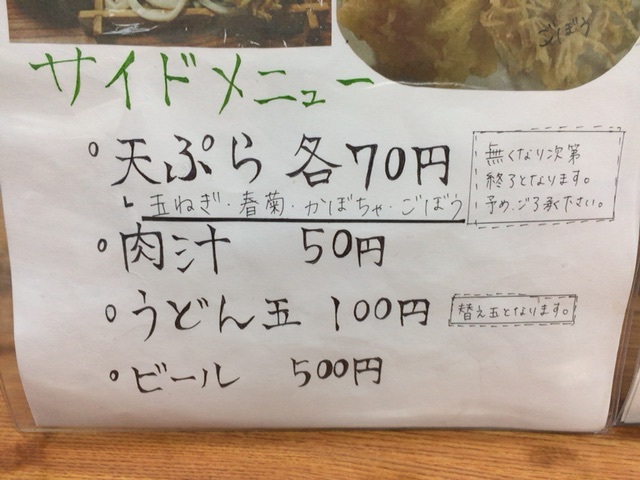 ごぼう
サイドメニュー
○天ぷら 各70円
└玉ねぎ・春菊・かぼちゃ・ごぼう
無くなり次第
終了となります。
予め、ご了承ください。
○肉汁 50円
○うどん玉 100円
替え玉となります。
○ビール 500円